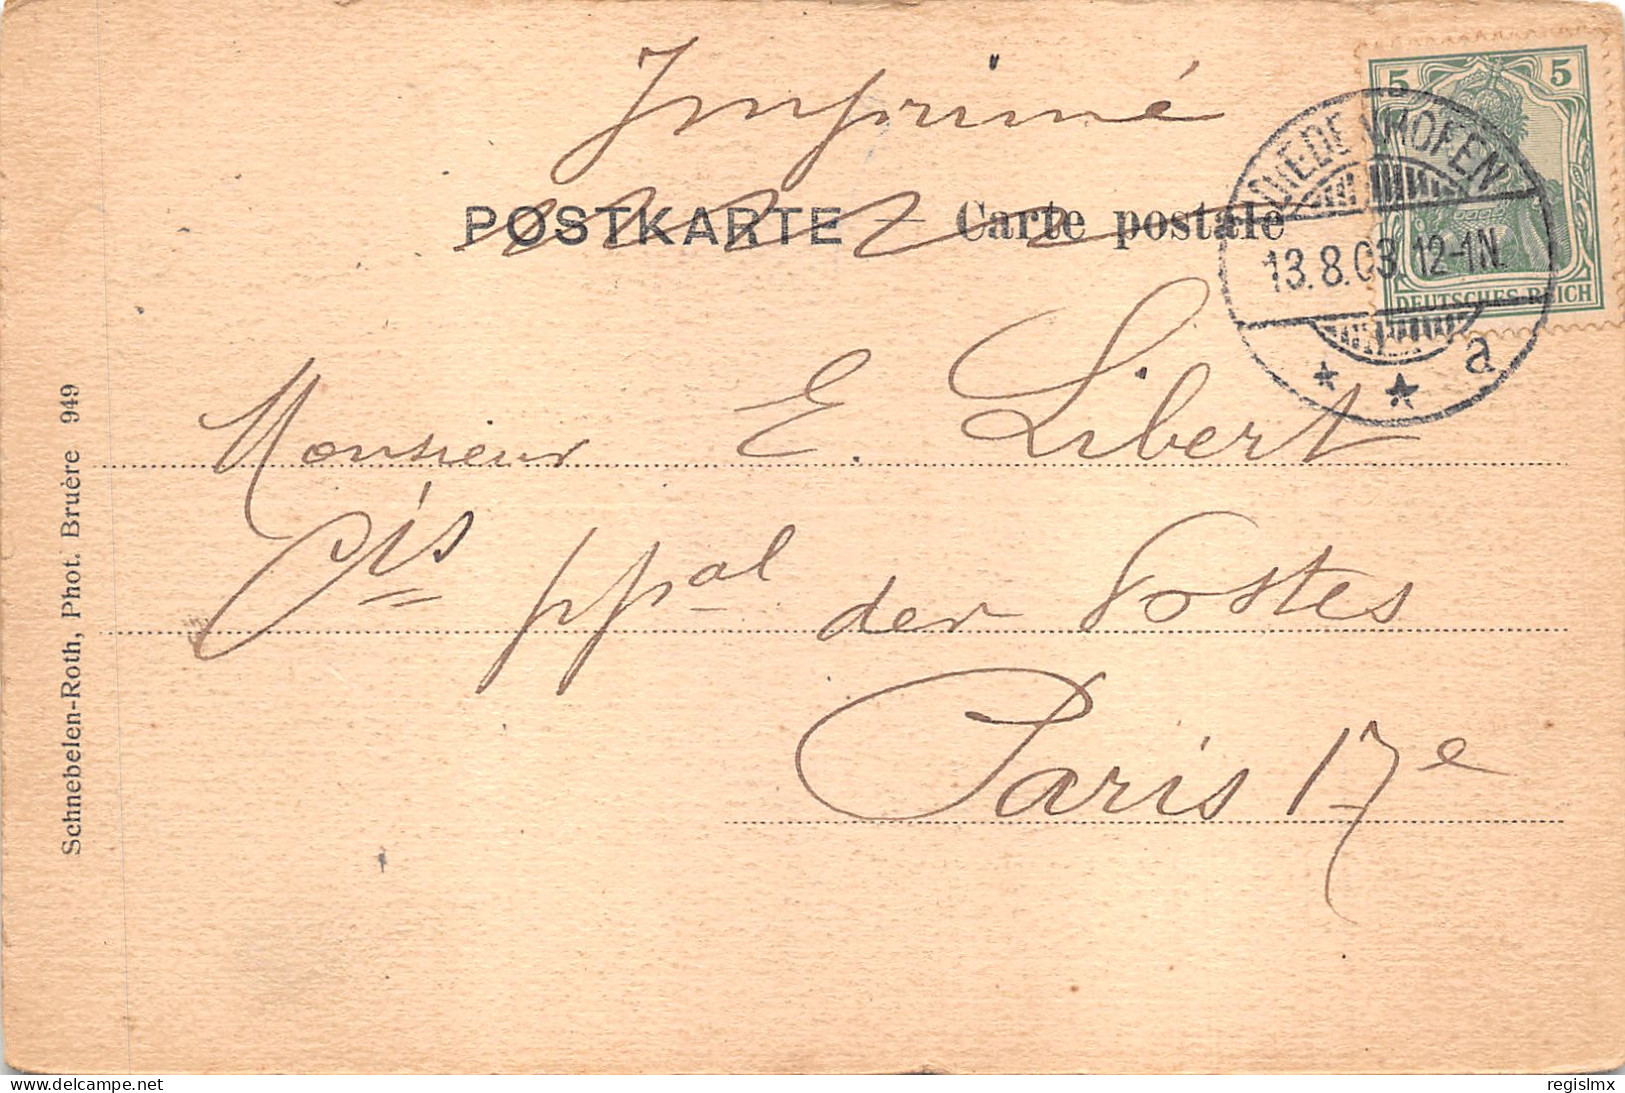 Imprimé
POSTKARTE — Carte postale
5 5
DEUTSCHES REICH
DIEDENHOFEN
13.8.03. 12-1N.
* * a
Monsieur E. Libert
Cis ppal der Postes
Paris 17e
Schnebelen-Roth, Phot. Bruère 949
delcampe.net
regislmx